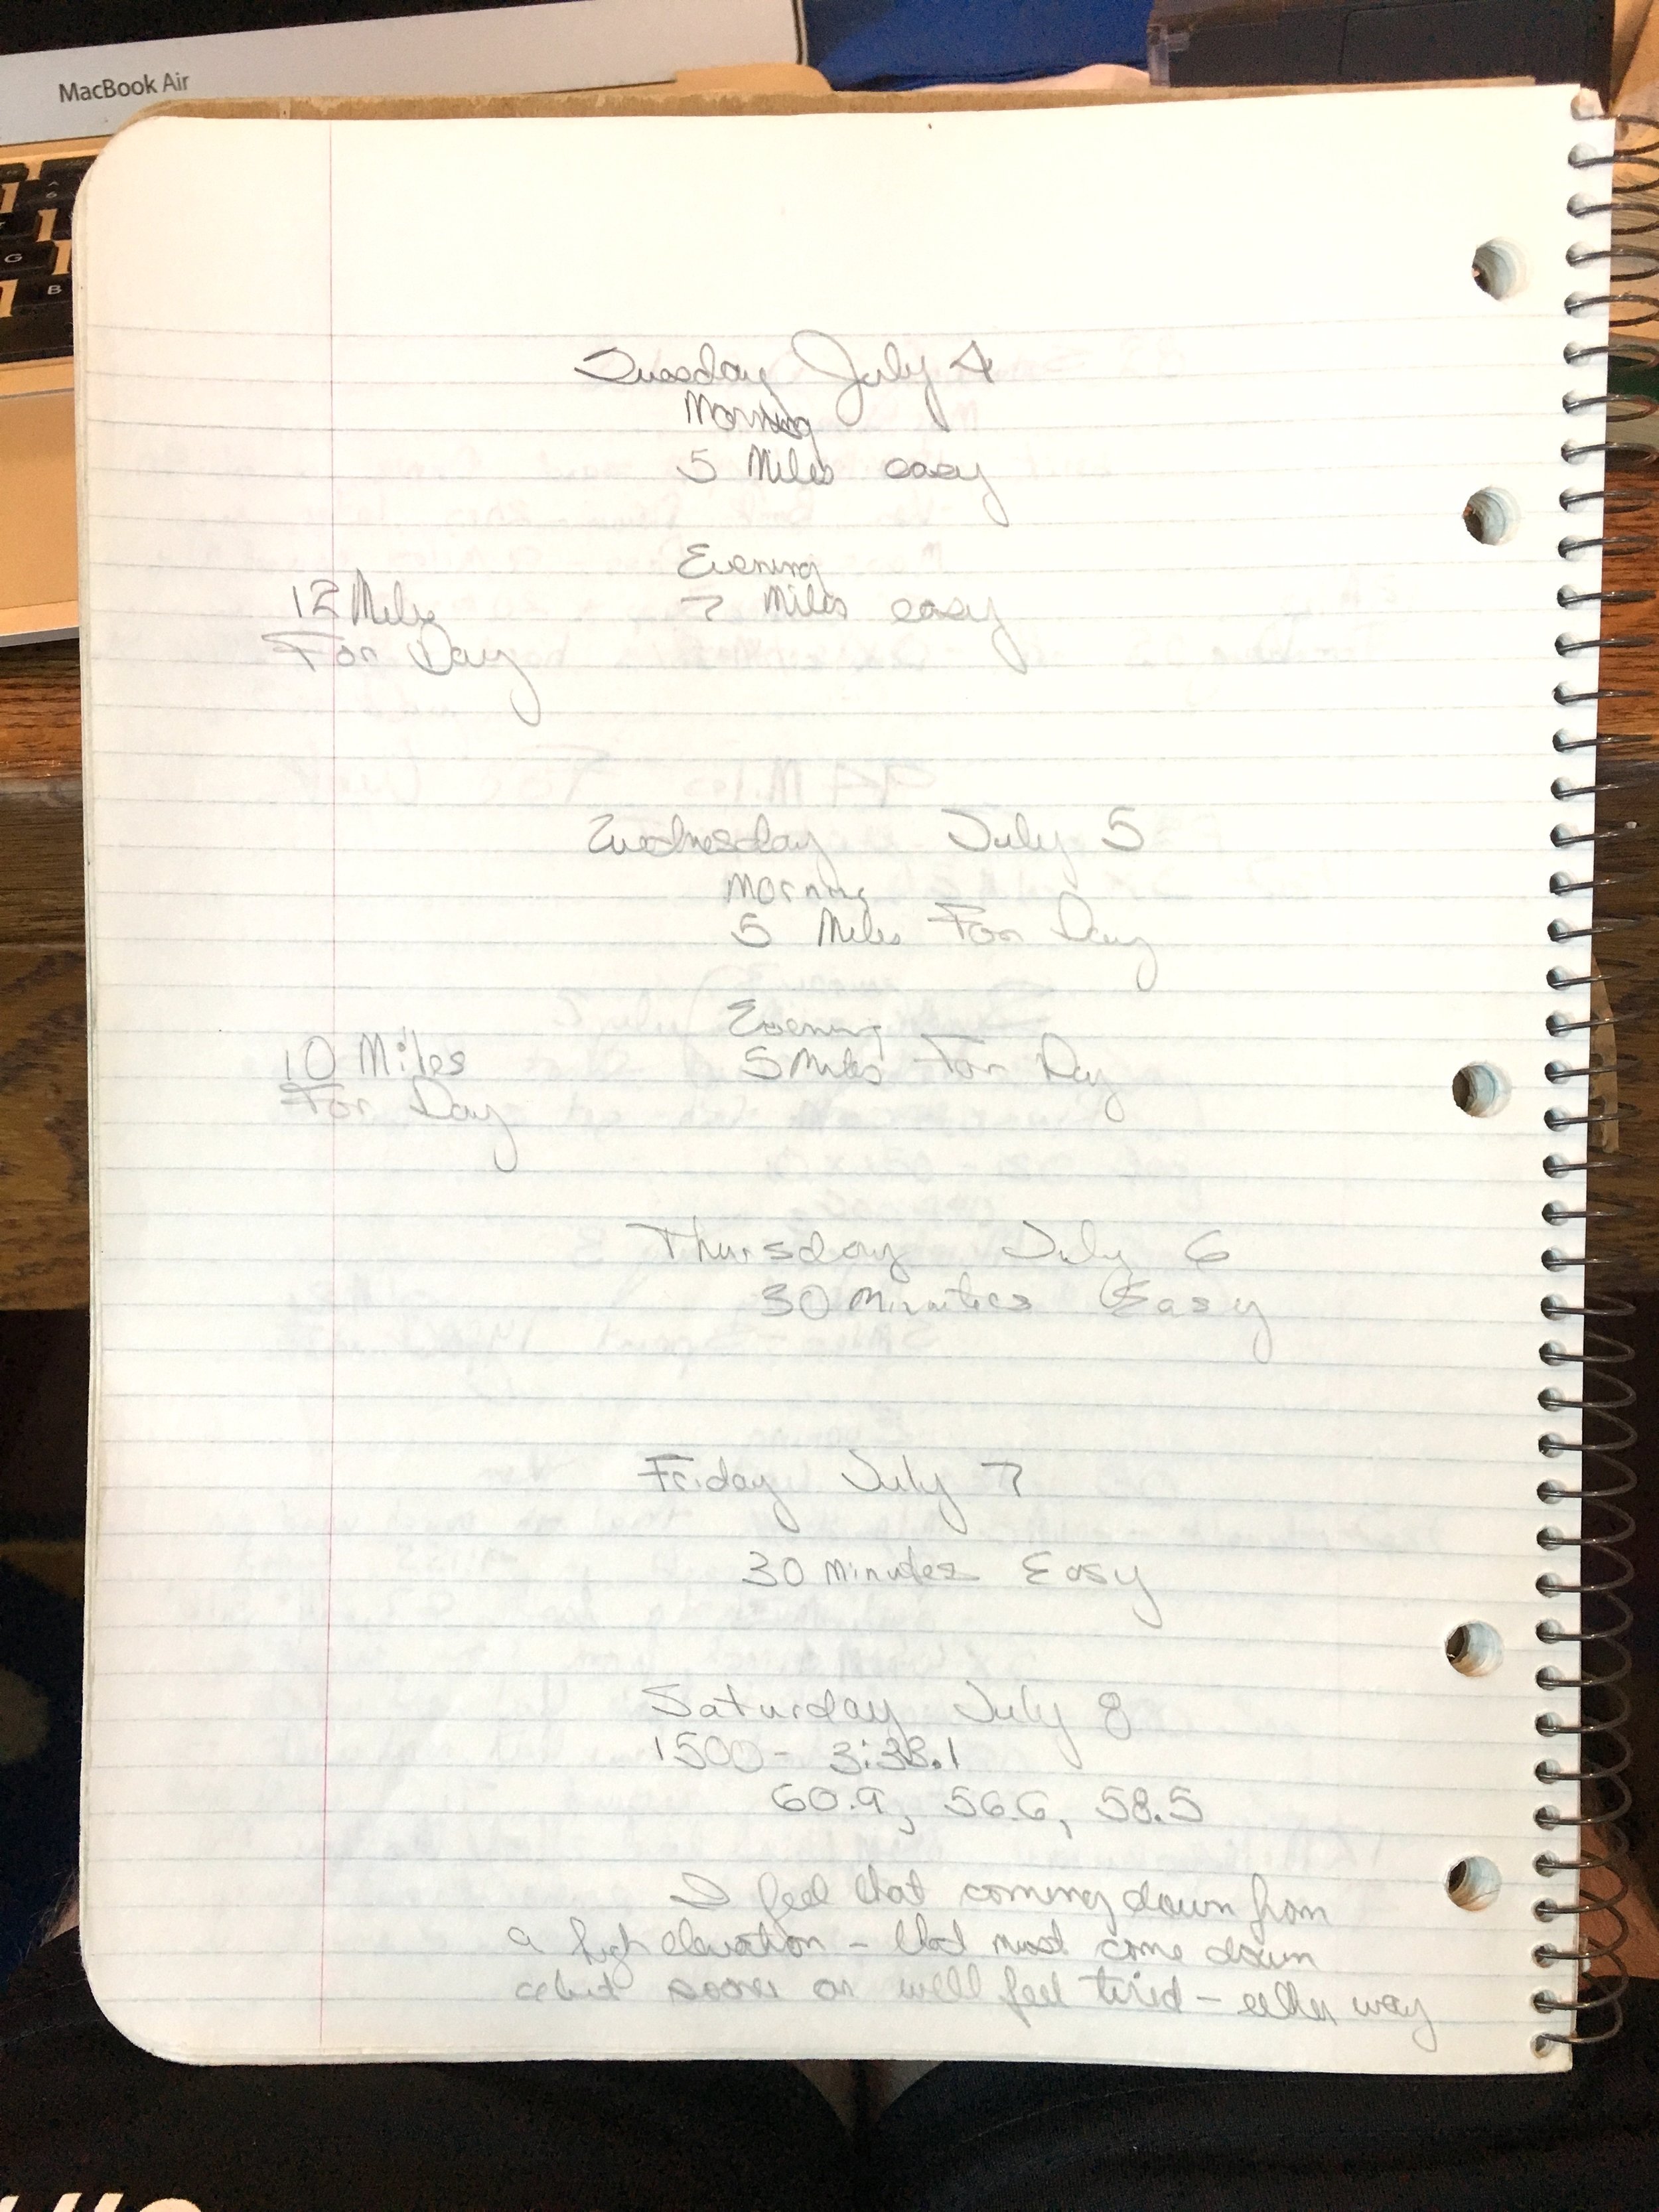 MacBook Air
G
B
Tuesday July 4
Morning
5 Miles easy
Evening
12 Miles 7 Miles easy
For Day
Wednesday July 5
Morning
5 Miles For Day
Evening
10 Miles 5 Miles For Day
For Day
Thursday July 6
30 Minutes Easy
Friday July 7
30 Minutes Easy
Saturday July 8
1500 - 3:38.1
60.9, 56.6, 58.5
I feel that coming down from
a high elevation - that must come down
sooner or we'll feel tired - either way